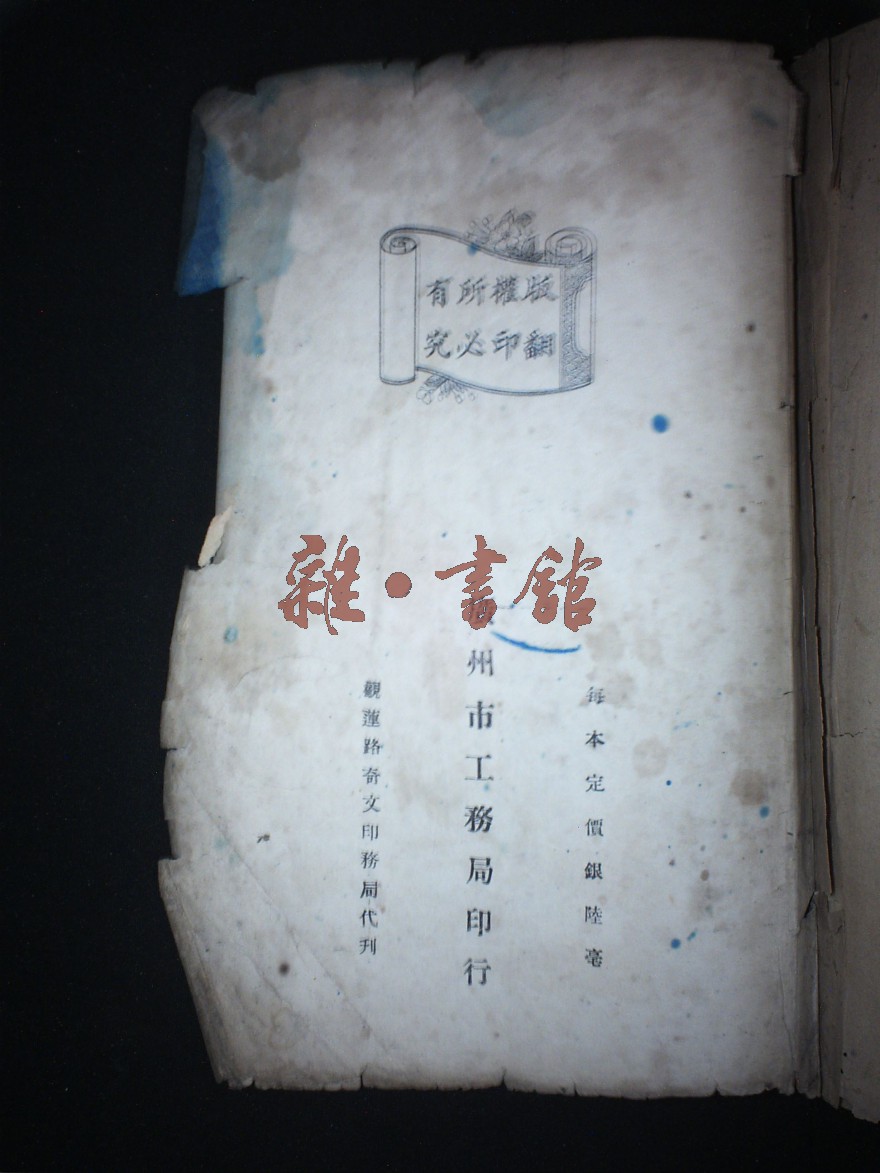 有所權版
究必印翻
雜·書館
每本定價銀陸毫
州市工務局印行
觀蓮路奇文印務局代刊